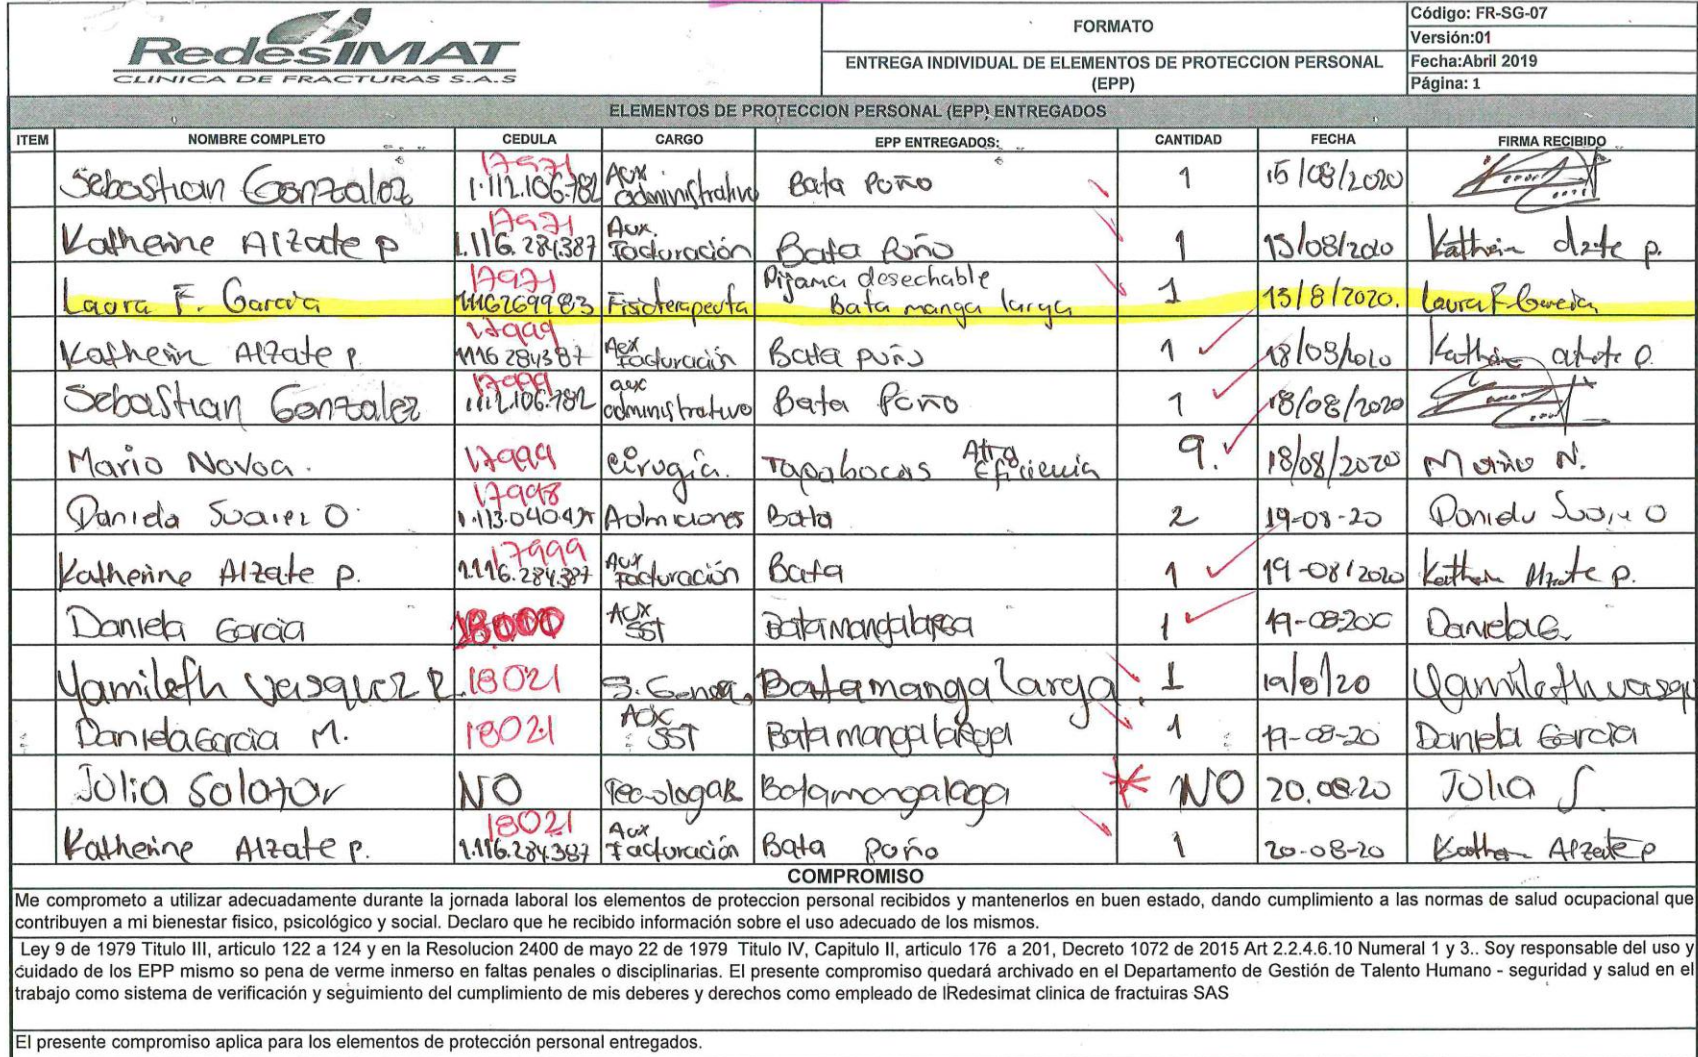 RedesIMAT
CLINICA DE FRACTURAS S.A.S
FORMATO
ENTREGA INDIVIDUAL DE ELEMENTOS DE PROTECCION PERSONAL
(EPP)
Código: FR-SG-07
Versión:01
Fecha:Abril 2019
Página: 1
ELEMENTOS DE PROTECCION PERSONAL (EPP) ENTREGADOS
ITEM NOMBRE COMPLETO CEDULA CARGO EPP ENTREGADOS: CANTIDAD FECHA FIRMA RECIBIDO
17971
Sebastian Gonzalez 1.112.106.782 Aux. administrativo Bata Puño 1 15/08/2020
17971
Katherine Alzate p 1.116.284.387 Aux. Facturación Bata Puño 1 15/08/2020 Katherin Alzate p.
17971 Pijama desechable
Laura F. Garcia 1116269983 Fisioterapeuta Bata manga larga 1 15/8/2020. Laura F Garcia
17999
Katherin Alzate p. 1116284387 Aux Facturación Bata puño 1 18/08/2020 Katherin alzate p.
17999
Sebastian Gonzalez 1.112.106.782 aux administrativo Bata Puño 1 18/08/2020
Mario Novoa. 17999 cirugía. Tapabocas Alta Eficiencia 9. 18/08/2020 Mario N.
17998
Daniela Suarez O. 1.113.040.425 Admiciones Bata 2 19-08-20 Daniela Suarez O
17999
Katherine Alzate p. 1.116.284.387 Aux Facturación Bata 1 19-08/2020 Katherin Alzate p.
Daniela Garcia 18000 Aux SST Bata manga larga 1 19-08-20 Daniela G.
Yamileth Vasquez R. 18021 S. General Bata manga larga. 1 19/8/20 Yamileth vasqu
Daniela Garcia M. 18021 Aux SST Bata manga larga 1 19-08-20 Daniela Garcia
Julia Salazar NO Bata manga laga * NO 20.08.20 Julia S
18021
Katherine Alzate p. 1.116.284.387 Aux Facturación Bata Puño 1 20-08-20 Katherin Alzate p
COMPROMISO
Me comprometo a utilizar adecuadamente durante la jornada laboral los elementos de proteccion personal recibidos y mantenerlos en buen estado, dando cumplimiento a las normas de salud ocupacional que
contribuyen a mi bienestar fisico, psicológico y social. Declaro que he recibido información sobre el uso adecuado de los mismos.
Ley 9 de 1979 Titulo III, articulo 122 a 124 y en la Resolucion 2400 de mayo 22 de 1979 Titulo IV, Capitulo II, articulo 176 a 201, Decreto 1072 de 2015 Art 2.2.4.6.10 Numeral 1 y 3.. Soy responsable del uso y
cuidado de los EPP mismo so pena de verme inmerso en faltas penales o disciplinarias. El presente compromiso quedará archivado en el Departamento de Gestión de Talento Humano - seguridad y salud en el
trabajo como sistema de verificación y seguimiento del cumplimiento de mis deberes y derechos como empleado de lRedesimat clinica de fractuiras SAS
El presente compromiso aplica para los elementos de protección personal entregados.